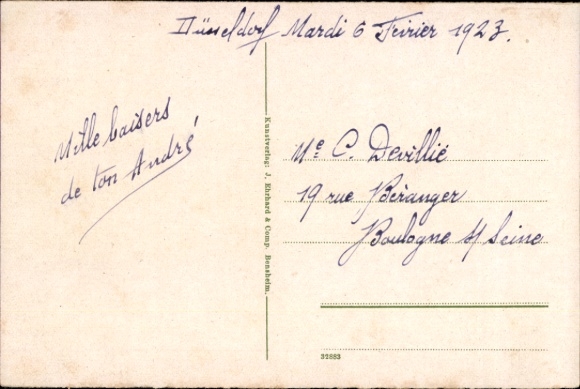 Düsseldorf Mardi 6 Février 1923.
Mille baisers
de ton André
Kunstverlag: J. Ehrhard & Comp. Bensheim.
Me C. Devillié
19 rue Béranger
Boulogne s/ Seine
32883